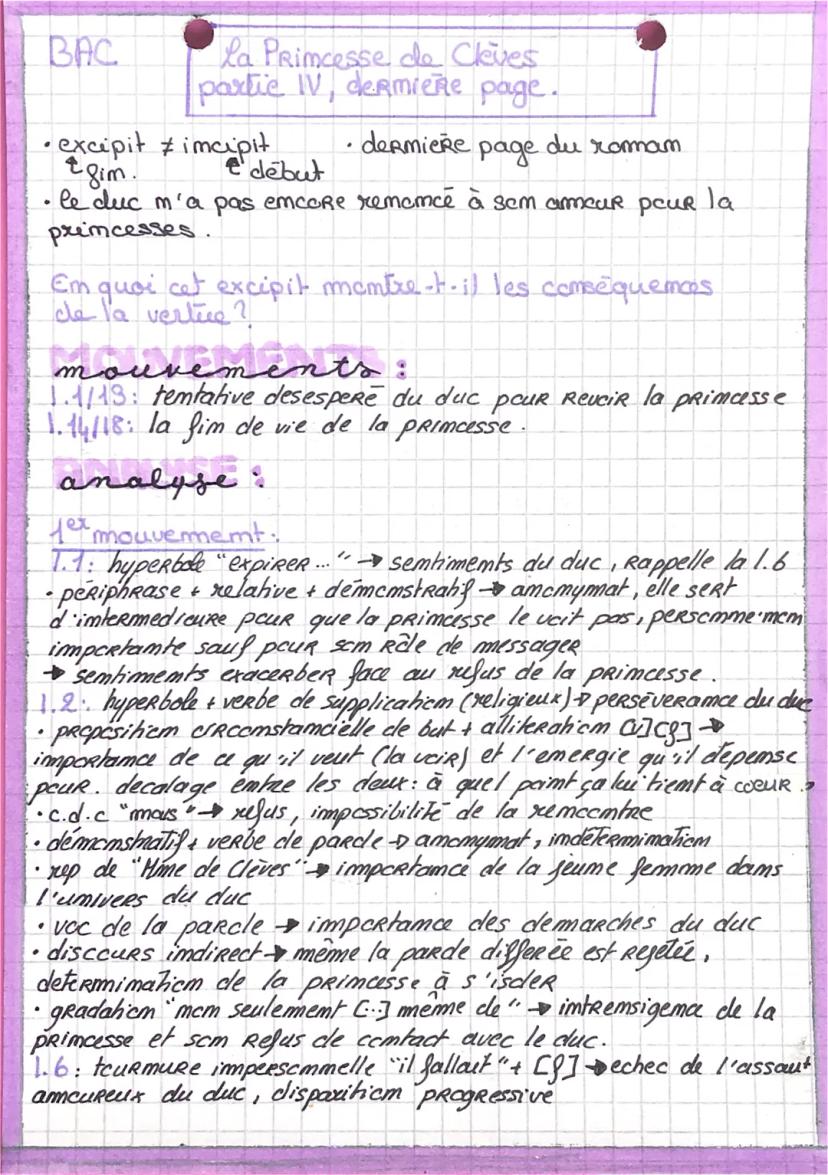 BAC
La Princesse de Clèves
partie IV, dernière page.
• excipit ≠ incipit • dernière page du roman
↑ fin. ↑ début
• le duc n'a pas encore renoncé à son amour pour la
princesses.
En quoi cet excipit montre-t-il les conséquences
de la vertue?
MOUVEMENTS
mouvements :
l.1/13: tentative desesperé du duc pour revoir la princesse
l.14/18: la fin de vie de la princesse.
ANALYSE
analyse :
1er mouvement:
l.1: hyperbole "expirer..." → sentiments du duc, rappelle la l.6
• périphrase + relative + démonstratif → anonymat, elle sert
d'intermediaire pour que la princesse le voit pas, personne non
importante sauf pour son rôle de messager
→ sentiments exacerber face au refus de la princesse.
l.2: hyperbole + verbe de supplication (religieux) → perséverance du duc
• proposition circonstancielle de but + alliteration [v] [f] →
importance de ce qu'il veut (la voir) et l'energie qu'il dépense
pour. decalage entre les deux: à quel point ça lui tient à coeur.
• c.d.c "mais" → refus, impossibilité de la rencontre
• démonstratif + verbe de parole → anonymat, indétermination
• rep de "Mme de Clèves" → importance de la jeune femme dans
l'univers du duc
• voc de la parole → importance des demarches du duc
• discours indirect → même la parole differée est rejetée,
determination de la princesse à s'isoler
• gradation "non seulement [..] même de" → intrensigence de la
princesse et son refus de contact avec le duc.
l.6: tournure impersonnelle "il fallait" + [f] → echec de l'assaut
amoureux du duc, disparition progressive